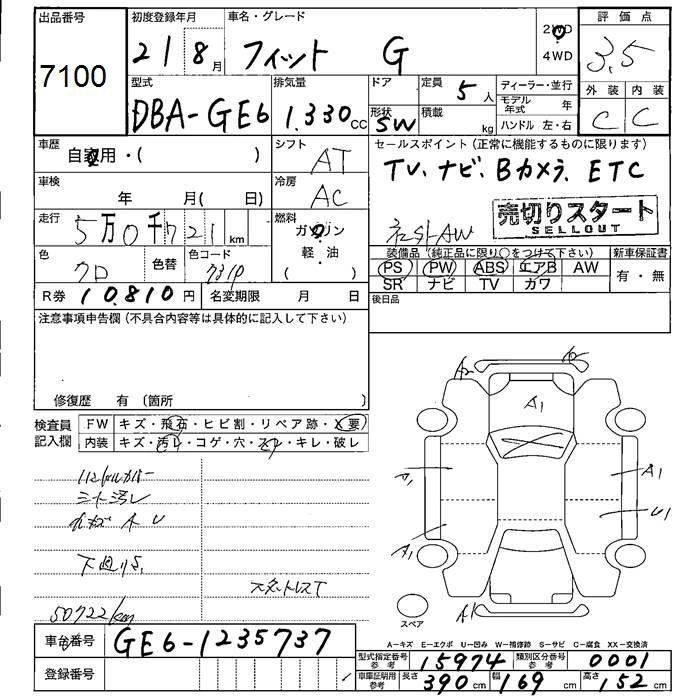 出品番号
7100
初度登録年月
21 8月
車名・グレード
フィット G
2WD
・
4WD
評価点
3.5
外装 内装
C C
型式
DBA-GE6
排気量
1.330cc
ドア
形状
SW
定員 5人
積載 kg
ディーラー・並行
モデル年式 年
ハンドル 左・右
車歴
自家用・( )
シフト
AT
車検
年 月( 日)
冷房
AC
走行
5万0千721km
燃料
ガソリン
軽・油
( )
色
クロ
色替
色コード
R券 10.810円
名変期限 月 日
セールスポイント(正常に機能するものに限ります)
TV、ナビ、Bカメラ、ETC
売切りスタート
SELLOUT
社外AW
装備品(純正品に限り○をつけて下さい)
新車保証書
PS PW ABS エアB AW
有・無
SR ナビ TV カワ
後日品
注意事項申告欄(不具合内容等は具体的に記入して下さい)
修復歴 有(箇所
検査員
記入欄
FW キズ・飛石・ヒビ割・リペア跡・X要
内装 キズ・汚レ・コゲ・穴・スレ・キレ・破レ
シート汚レ
下廻りS1
50722km
A2
A1
A1
U1
A1
A1
スペア
車台番号
GE6-1235737
登録番号
A…キズ E…エクボ U…凹み W…補修跡 S…サビ C…腐食 XX…交換済
型式指定番号
参考
15974
類別区分番号
参考
0001
車庫証明用
参考
長さ 390cm
幅 169cm
高さ 152cm